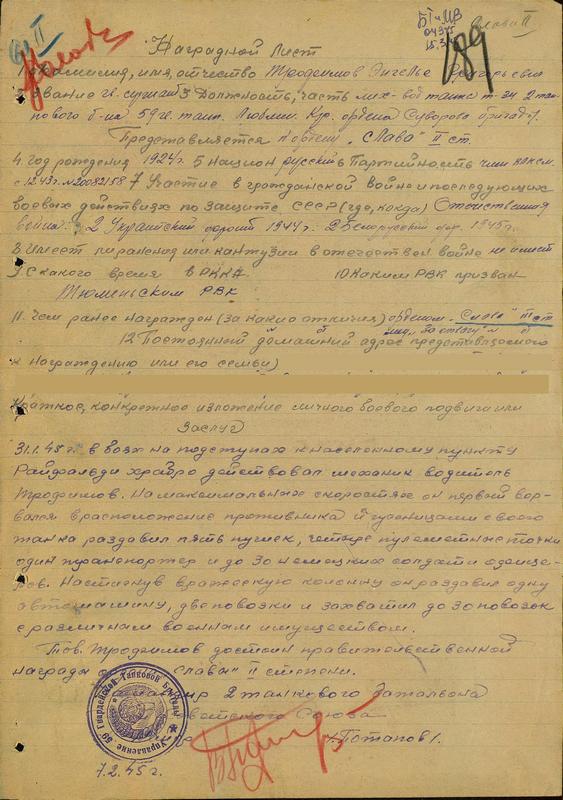 БТ и МВ
04975
15.3.45
189
Наградной лист
1. Фамилия, имя, отчество Трофимов
2 Звание гв. сержант 3 Должность, часть мех-вод танка т-34 2 тан-
кового б-на 59 гв. танк. Люблин. Кр. ордена Суворова бригады.
Представляется к ордену „Слава" II ст.
4. год рождения 1924г. 5 Национ русский 6 Партийность член ВЛКСМ
с 1243г. №20082158 7 Участие в гражданской войне и последующих
боевых действиях по защите СССР (где, когда) Отечественная
война: 2 Украинский фронт 1944г. 2 Белорусский фр. 1945г.
8 Имеет ли ранения или контузии в отечествен войне не имеет
9 С какого время в РККА 10 Каким РВК призван
Тюменьским РВК
11. Чем ранее награжден (за какие отличия) орденом „Слава" III ст
мед. „За отвагу"
12 Постоянный домашний адрес представляемого
к награждению или его семьи)
Краткое, конкретное изложение личного боевого подвига или
заслуг
31.1.45г. в боях на подступах к населенному пункту
Райфальди храбро действовал механик водитель
Трофимов. На максимальных скоростях он первый вор-
вался в расположение противника и гусеницами своего
танка раздавил пять пушек, четыре пулеметные точки
один транспортер и до 30 немецких солдат и офице-
ров. Настигнув вражескую колонну он раздавил одну
автомашину, две повозки и захватил до 30 повозок
с различным военным имуществом.
Тов. Трофимов достоин правительственной
награды „Слава" II степени.
Командир 2 танкового батальона
Советского Союза
/Потапов/.
Управление 59 Гвардейской Танковой Бригады
7.2.45г.